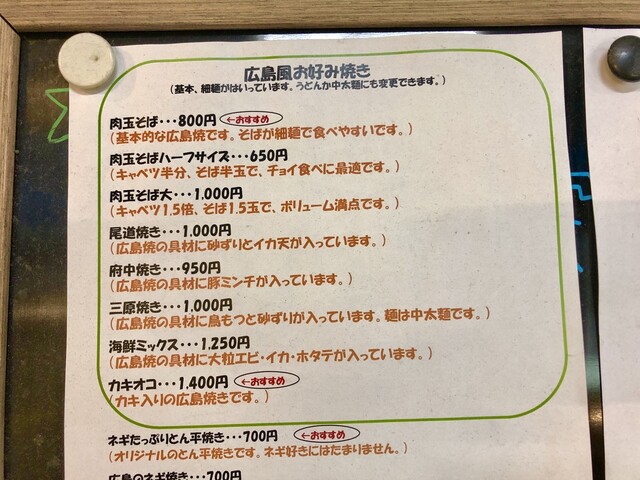 広島風お好み焼き
(基本、細麺がはいっています。うどんか中太麺にも変更できます。)
肉玉そば・・・800円 ←おすすめ
(基本的な広島焼です。そばが細麺で食べやすいです。)
肉玉そばハーフサイズ・・・650円
(キャベツ半分、そば半玉で、チョイ食べに最適です。)
肉玉そば大・・・1,000円
(キャベツ1.5倍、そば1.5玉で、ボリューム満点です。)
尾道焼き・・・1,000円
(広島焼の具材に砂ずりとイカ天が入っています。)
府中焼き・・・950円
(広島焼の具材に豚ミンチが入っています。)
三原焼き・・・1,000円
(広島焼の具材に鳥もつと砂ずりが入っています。麺は中太麺です。)
海鮮ミックス・・・1,250円
(広島焼の具材に大粒エビ・イカ・ホタテが入っています。)
カキオコ・・・1,400円 ←おすすめ
(カキ入りの広島焼きです。)
ネギたっぷりとん平焼き・・・700円 ←おすすめ
(オリジナルのとん平焼きです。ネギ好きにはたまりません。)
広島のネギ焼き・・・700円